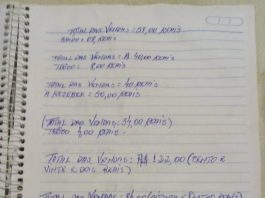 TOTAL DAS VENDAS = 58,00 REAIS
REAIS
TOTAL DAS VENDAS = R 40,00 REAIS
TROCO = 8,00 REAIS
TOTAL DAS VENDAS = 40 REAIS
A RECEBER = 50,00 REAIS
(TOTAL DAS VENDAS: 54,00 REAIS
TROCO 4,00 REAIS
TOTAL DAS VENDAS: 122,00 (CENTO E
VINTE E DOIS REAIS)
TOTAL DAS VENDAS: